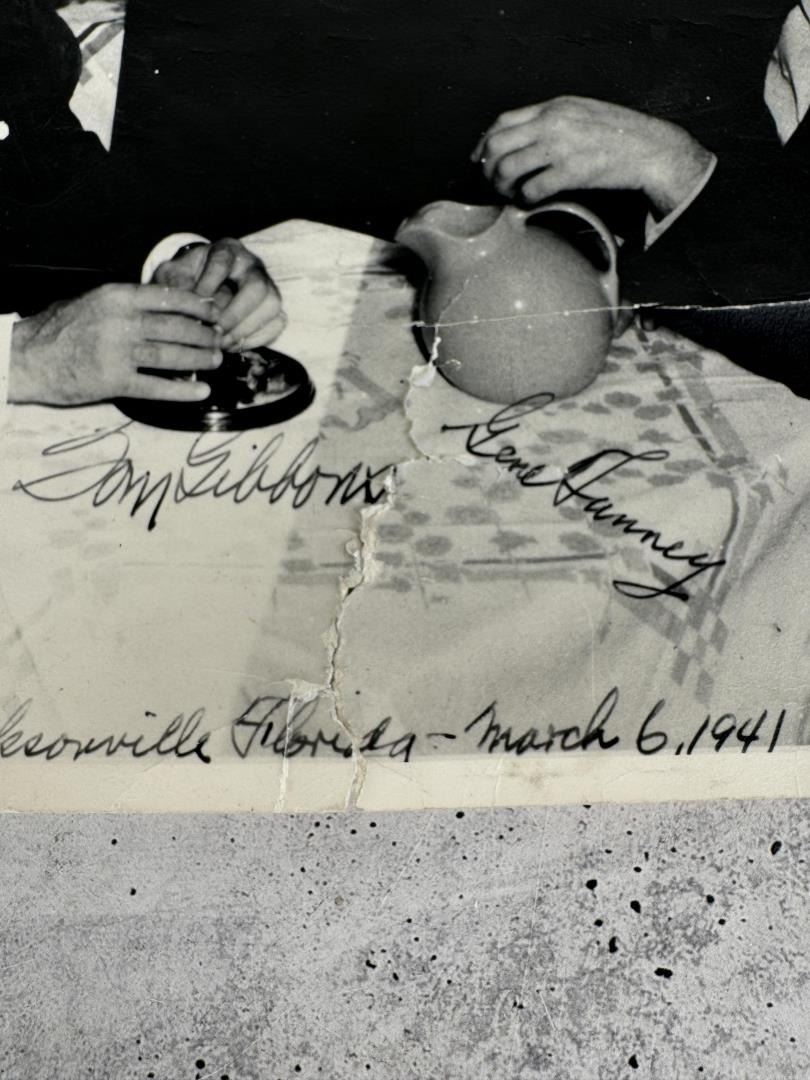 Tom Gibbons
Gene Tunney
ksonville Florida - March 6, 1941